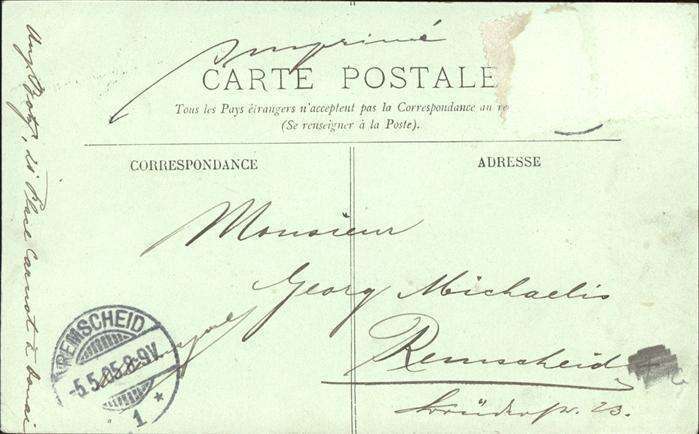 Imprimé
CARTE POSTALE
Tous les Pays étrangers n'acceptent pas la Correspondance au re
(Se renseigner à la Poste).
CORRESPONDANCE
ADRESSE
Monsieur
Georg Michaelis
Remscheid
str. 23.
REMSCHEID
-5.5.05.8-9V.
* 1 *
21 Place Carnot à